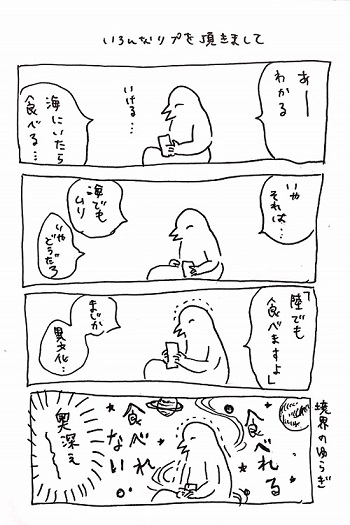 いろんなリプを頂きまして
あー
わかる
いける…
海にいたら
食べる…
いや
それは…
海でも
ムリ
いや
どうだろ
「陸でも
食べますよ」
まじか
異文化…
境界のゆらぎ
食べれる
食べれ
ない
奥深え
〜